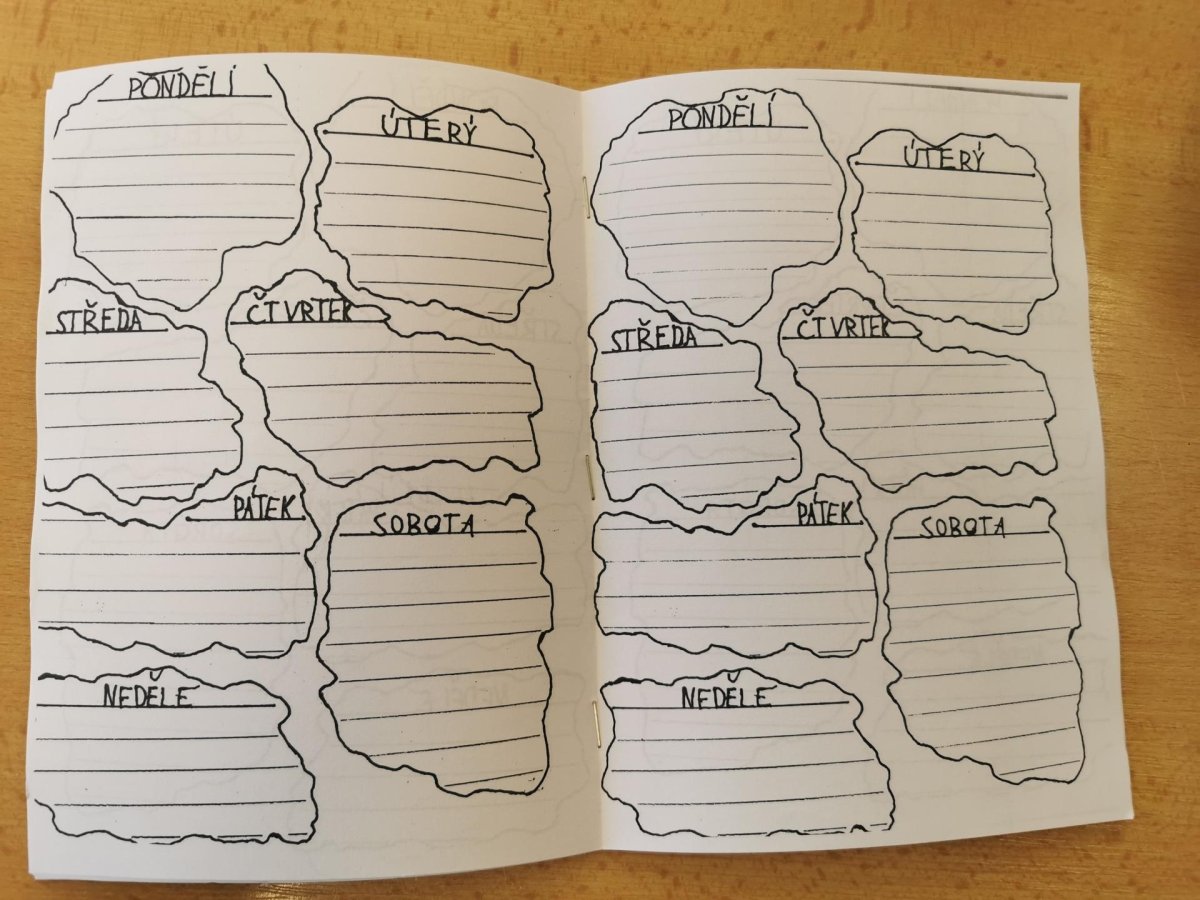 PONDĚLÍ
ÚTERÝ
STŘEDA
ČTVRTEK
PÁTEK
SOBOTA
NEDĚLE
PONDĚLÍ
ÚTERÝ
STŘEDA
ČTVRTEK
PÁTEK
SOBOTA
NEDĚLE